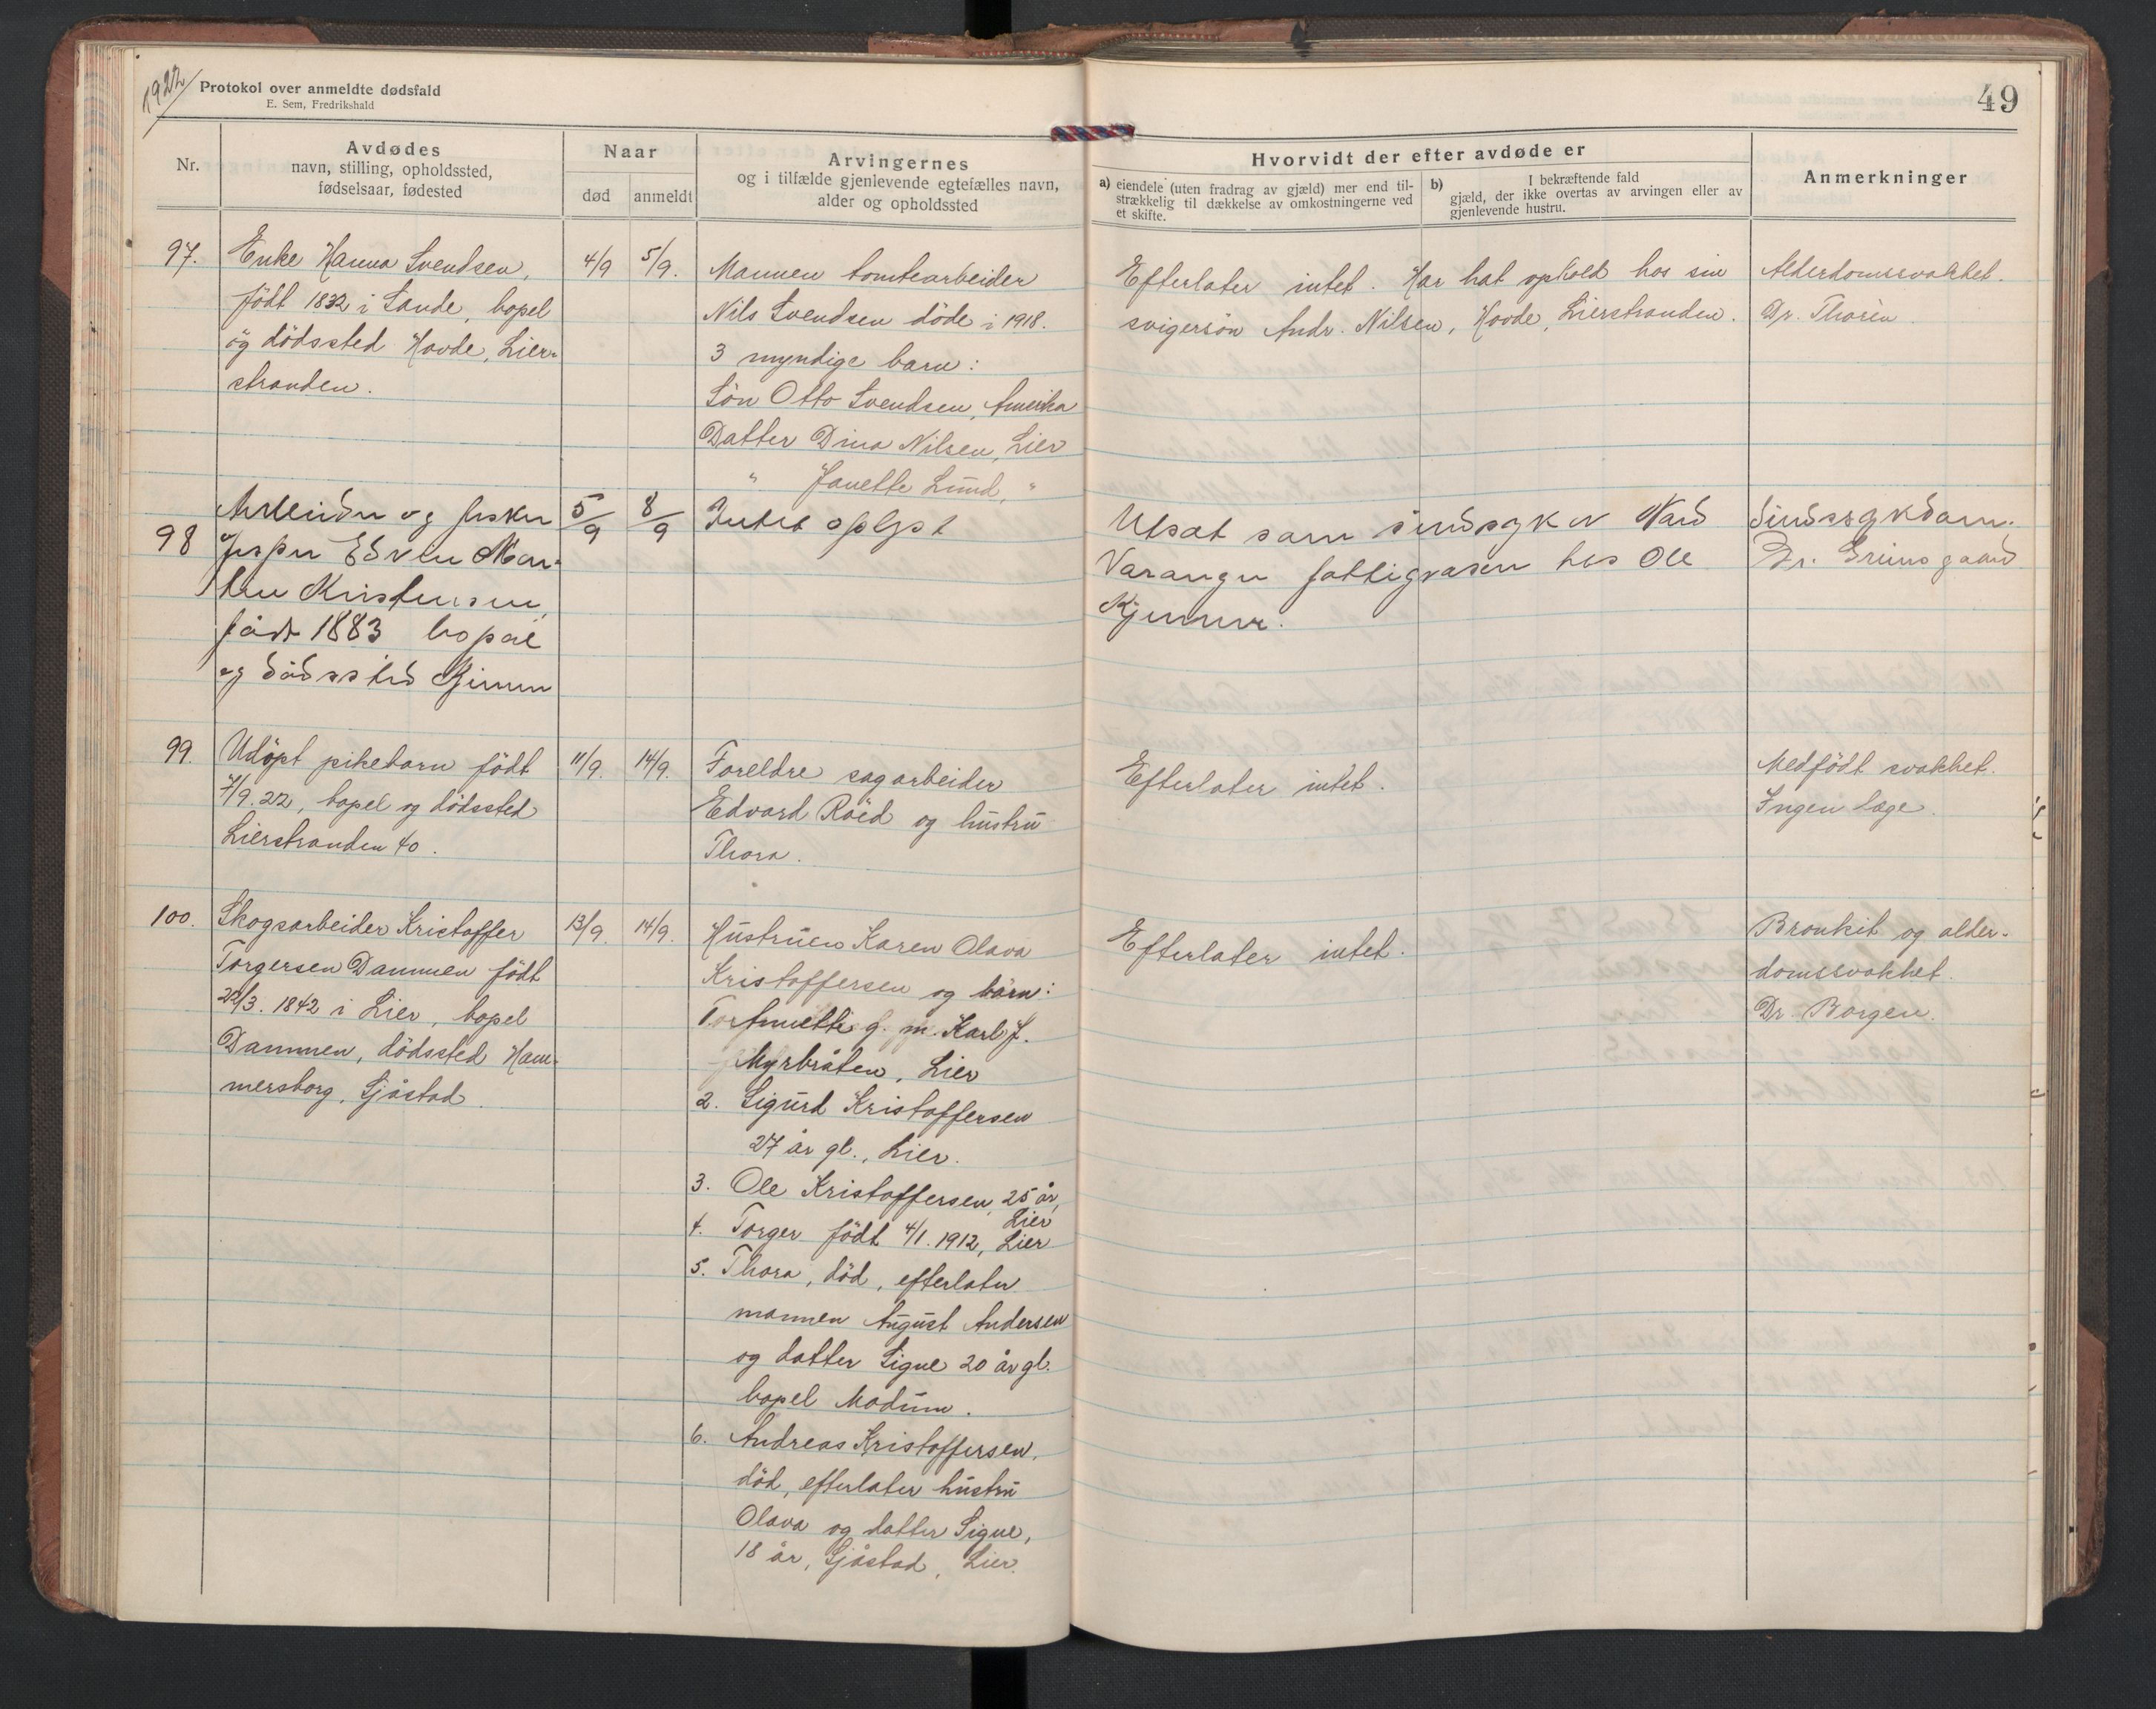 1922
Protokol over anmeldte dødsfald
E. Sem, Fredrikshald
49
Nr.
Avdødes
navn, stilling, opholdssted,
fødselsaar, fødested
Naar
død
anmeldt
Arvingernes
og i tilfælde gjenlevende egtefælles navn,
alder og opholdssted
Hvorvidt der efter avdøde er
a) eiendele (uten fradrag av gjæld) mer end til-
strækkelig til dækkelse av omkostningerne ved
et skifte.
b) I bekræftende fald
gjæld, der ikke overtas av arvingen eller av
gjenlevende hustru.
Anmerkninger
97.
Enke Hanna Svendsen,
født 1832 i Sande, bopel
og dödssted Hovde, Lier-
stranden.
4/9
5/9.
Mannen tomtearbeider
Nils Svendsen döde i 1918.
3 myndige barn:
Sön Otto Svendsen, Amerika
Datter Dina Nilsen, Lier
" Janette Lund, "
Efterlater intet. Har hat ophold hos sin
svigersön Andr. Nilsen, Hovde, Lierstranden.
Alderdomssvakhet.
Dr. Thorén
98
Arbeider og fisker
Jesper Edvin Mor-
ten Kristensen,
född 1883 bopæl
og dödssted Gjennem
5/9
8/9
Intet oplyst
Utsat som sindssyk av Nord
Varanger fattigvæsen hos Ole
Sindssygdom.
Dr. Grimsgaard
99.
Udöpt pikebarn födt
7/9.22, bopel og dödssted
Lierstranden 40.
11/9.
14/9.
Foreldre sagarbeider
Edvard Röed og hustru
Thora.
Efterlater intet.
Medfödt svakhet.
Ingen læge.
100.
Skogsarbeider Kristoffer
Torgersen Dammen födt
22/3. 1842 i Lier, bopel
Dammen, dödssted Ham-
mersborg, Sjåstad.
13/9.
14/9.
Hustruen Karen Olava
Kristoffersen og bärn:
g. m. Karl J.
Myrbråten, Lier
2. Sigurd Kristoffersen
27 år gl., Lier.
3. Ole Kristoffersen, 25 år,
Lier
4. Torger födt 4/1. 1912, Lier
5. Thora, död, efterlater
mannen August Andersen
og datter Signe 20 år gl.
bopel Modum.
6. Andreas Kristoffersen,
död, efterlater hustru
Olava og datter Signe,
18 år, Sjåstad, Lier.
Efterlater intet.
Bronkit og alder-
domssvakhet.
Dr. Borgen.